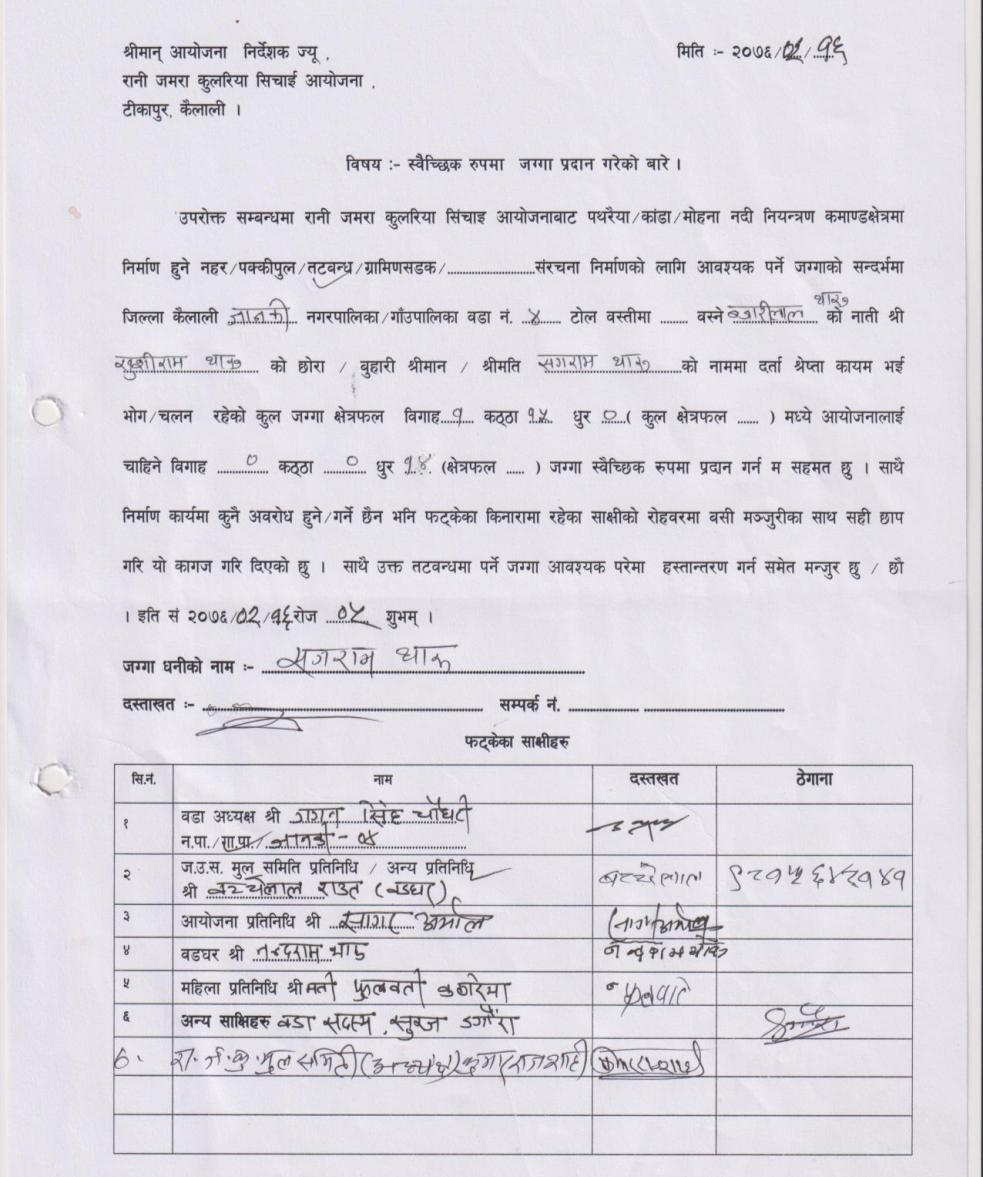 श्रीमान् आयोजना निर्देशक ज्यू , मिति :- २०७६/०२/१६
रानी जमरा कुलरिया सिचाई आयोजना ,
टीकापुर, कैलाली ।
विषय :- स्वैच्छिक रुपमा जग्गा प्रदान गरेको बारे ।
उपरोक्त सम्बन्धमा रानी जमरा कुलरिया सिंचाइ आयोजनाबाट पथरैया/कांडा/मोहना नदी नियन्त्रण कमाण्डक्षेत्रमा
निर्माण हुने नहर/पक्कीपुल/तटबन्ध/ग्रामिणसडक/........................संरचना निर्माणको लागि आवश्यक पर्ने जग्गाको सन्दर्भमा
जिल्ला कैलाली जानकी नगरपालिका/गाँउपालिका वडा नं. ४ टोल वस्तीमा ........ वस्ने थारु को नाती श्री
थारु को छोरा / बुहारी श्रीमान / श्रीमति सगराम थारु को नाममा दर्ता श्रेष्ता कायम भई
भोग/चलन रहेको कुल जग्गा क्षेत्रफल विगाह १ कठ्ठा १५ धुर ० ( कुल क्षेत्रफल ...... ) मध्ये आयोजनालाई
चाहिने विगाह ० कठ्ठा ० धुर १४ (क्षेत्रफल ..... ) जग्गा स्वैच्छिक रुपमा प्रदान गर्न म सहमत छु । साथै
निर्माण कार्यमा कुनै अवरोध हुने/गर्ने छैन भनि फट्केका किनारामा रहेका साक्षीको रोहवरमा बसी मञ्जुरीका साथ सही छाप
गरि यो कागज गरि दिएको छु । साथै उक्त तटवन्धमा पर्ने जग्गा आवश्यक परेमा हस्तान्तरण गर्न समेत मन्जुर छु / छौ
। इति सं २०७६/०२/१६ रोज ०५ शुभम् ।
जग्गा धनीको नाम :- सगराम थारु
दस्ताखत :- सम्पर्क नं.
फट्केका साक्षीहरु
सि.नं. नाम दस्तखत ठेगाना
१ वडा अध्यक्ष श्री गगन सिंह चौधरी
न.पा./गा.पा./जानकी - ०४
२ ज.उ.स. मुल समिति प्रतिनिधि / अन्य प्रतिनिधि
श्री बच्चेलाल राउत (वडघर) बच्चेलाल
३ आयोजना प्रतिनिधि श्री सागर
४ वडघर श्री नन्दराम थारु
५ महिला प्रतिनिधि श्रीमती फुलवती कठरिया
६ अन्य साक्षिहरु वडा सदस्य, सुरज डगौरा
७. रा.ज.कु.मुल समिती (अध्यक्ष)